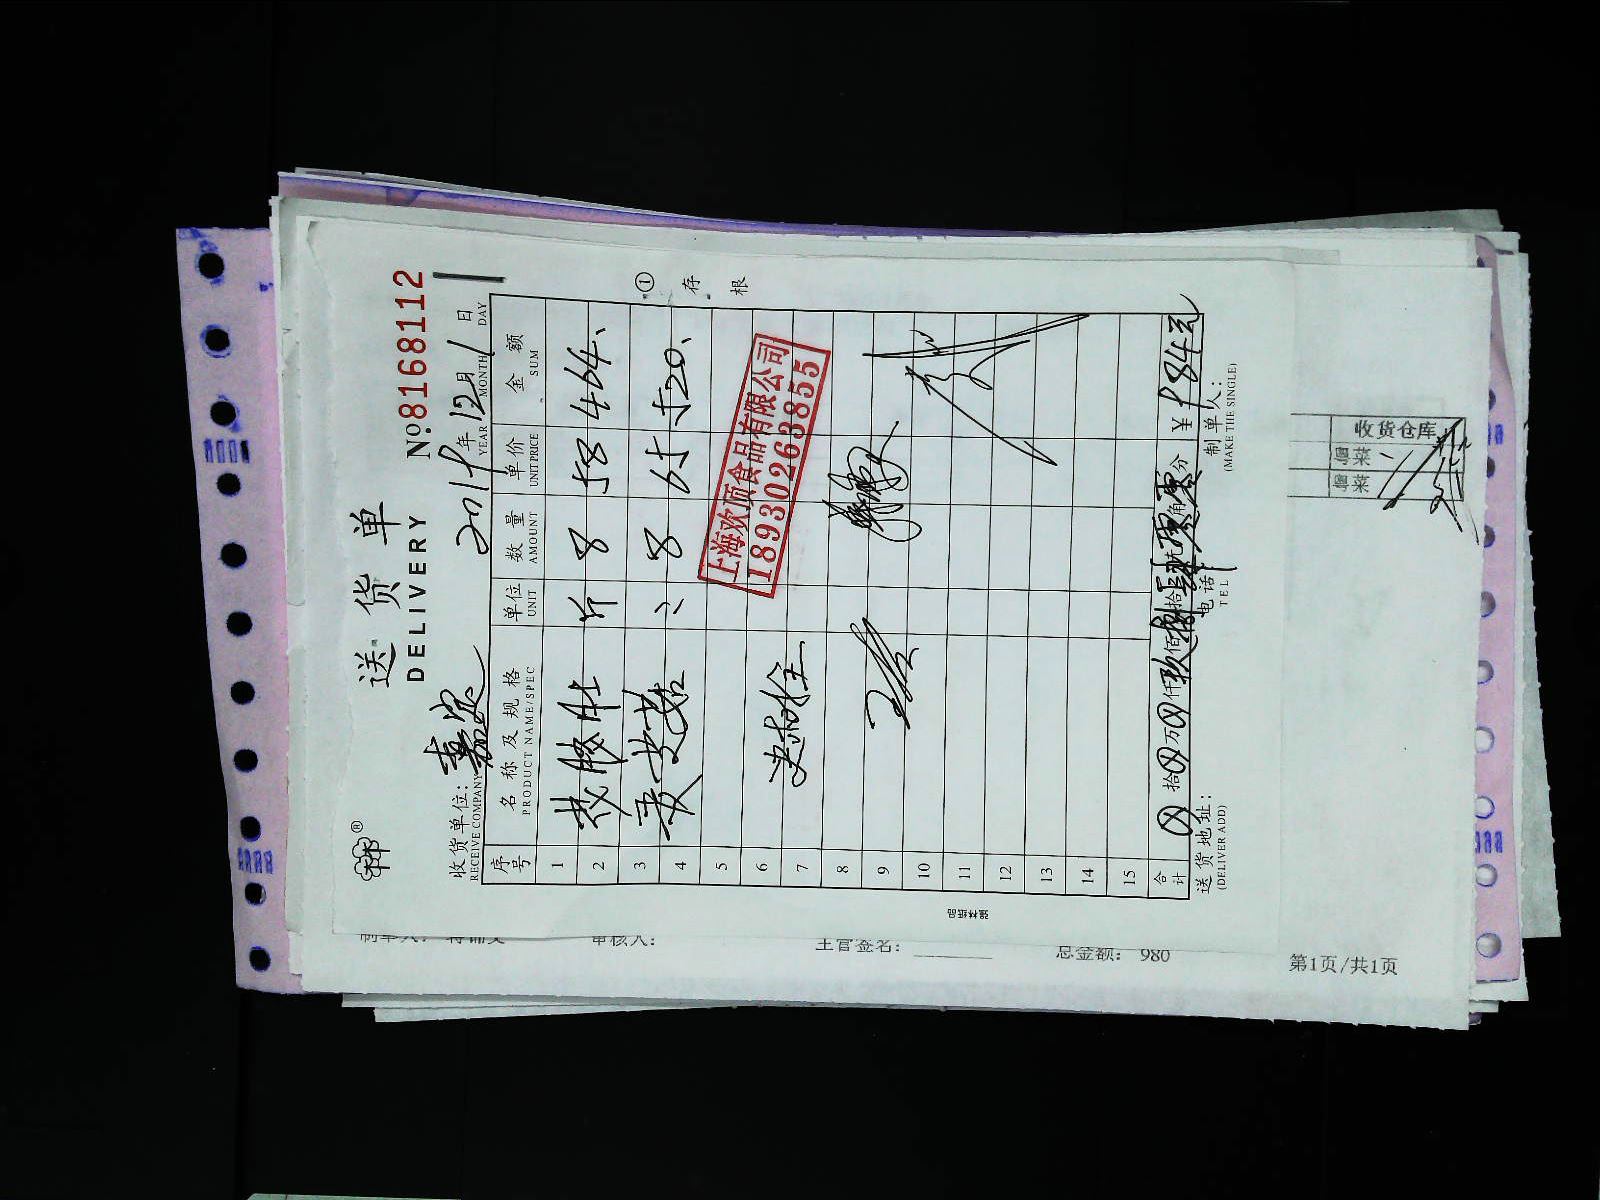 送货单
DELIVERY
№:8168112
收货单位：嘉定
RECEIVE COMPANY
2019年12月1日
YEAR MONTH DAY
序号 名称及规格 单位 数量 单价 金额
PRODUCT NAME/SPEC UNIT AMOUNT UNIT PRICE SUM
①存根
1
2 斤 8 58 464.
3
4 8 65 520.
5
6
7
8
9
10
11
12
13
14
15
上海欢顶食品有限公司
18930263855
合计 拾 万 仟玖佰捌拾肆元零角零分 ¥ 984元
送货地址：
(DELIVER ADD)
电话
TEL
制单人：
(MAKE THE SINGLE)
强林纸品
收货仓库
粤菜
粤菜
审核人：
主管签名：
总金额： 980
第1页/共1页